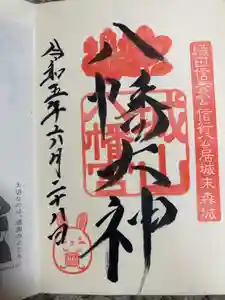 織田信秀公信行公居城末森城
八幡大神
城山
八幡宮
令和五年六月二十八日